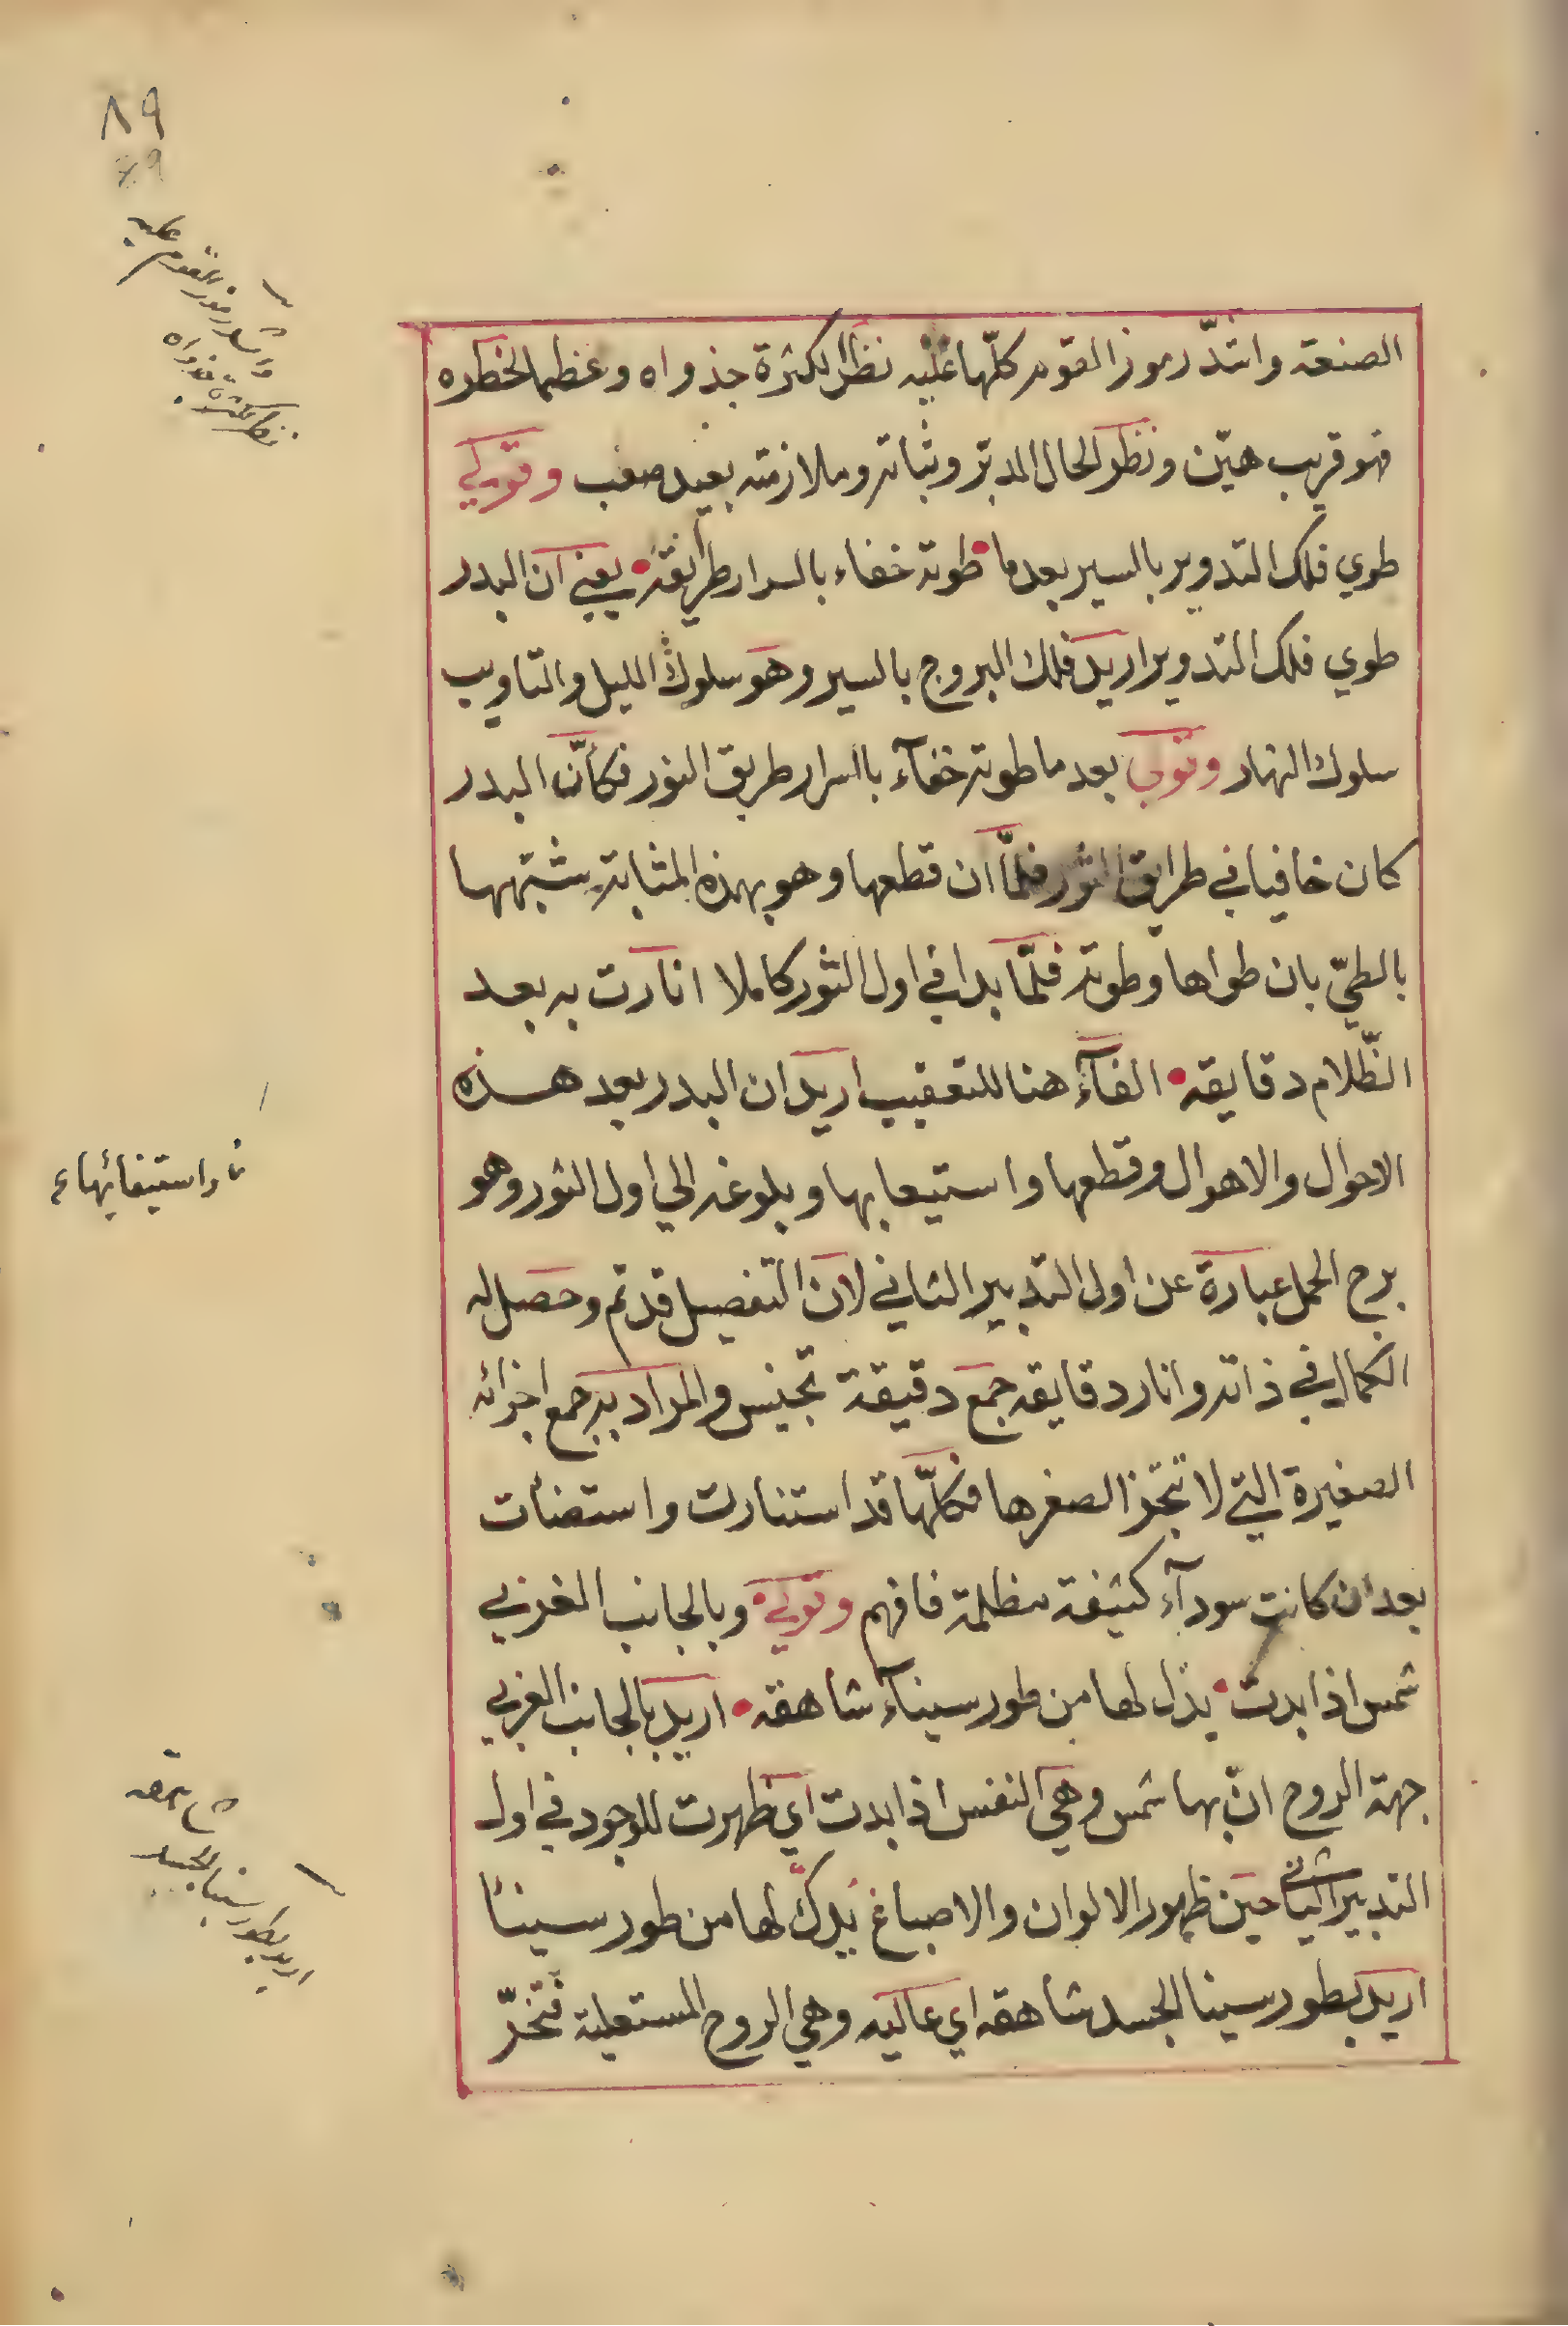 ٨٩
٧٩
الصنعة واشدّ رموز القوم كلّها عليه نظرا لكثرة جذواه وعظم الخطره
فهو قريب هيّن ونظرا لحال المدبّر وثباته وملازمته بعيد صعب وقولي
طوي فلك التدوير بالسير بعدما طوته خفاء بالسرار طرايقه يعني ان البدر
طوي فلك التدوير اريد فلك البروج بالسير وهو سلوك الليل والتاويب
سلوك النهار وقولي بعد ما طوته خفآء باالسرار طريق النور فكأنّ البدر
كان خافيا في طرايق النور فلمّا ان قطعها وهو بهذه المثابة شبّهها
بالطيّ بان طواها وطوته فلمّا بدا في اول الثور كاملا انارت به بعد
الظّلام دقايقه الفآء هنا للتعقيب اريد ان البدر بعد هذه
الاحوال والاهوال وقطعها واستيعابها وبلوغه الي اول الثور وهو
برج الحمل عبارة عن اول التدبير الثاني لان التفصيل قد تم وحصل له
الكمال في ذاته وانار دقايقه جمع دقيقة تجنيس والمراد به جمع اجزائه
الصغيرة التي لا تتجزا لصغرها فكلّها قد استنارت واستضأت
بعد ان كانت سودآء كثيفة مظلمة فافهم وقولي وبالجانب الغربي
شمس اذا بدت يدل لها من طور سينآء شاهقه اريد بالجانب الغربي
جهة الروح انّ بها شمس وهي النفس اذا بدت اي ظهرت للوجود في اول
التدبير الثاني حين ظهور الالوان والاصباغ يدكّ لها من طور سيناً
اريد بطور سينا الجسد شاهقه اي عاليه وهي الروح المستعلية فتخرّ
واستيفائها
اريد بطور سينا الجسد